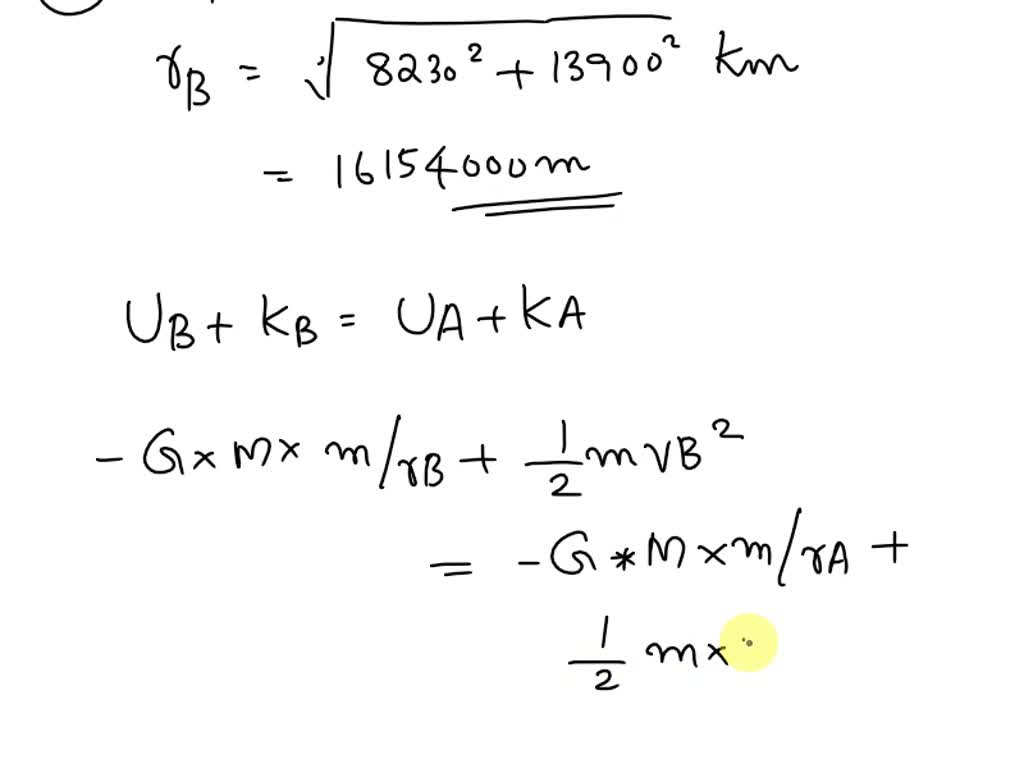 rB = √8230² + 13900² km
= 16154000m
UB + KB = UA + KA
- G × M × m/rB + 1/2 m VB²
= - G * M × m/rA +
1/2 m ×